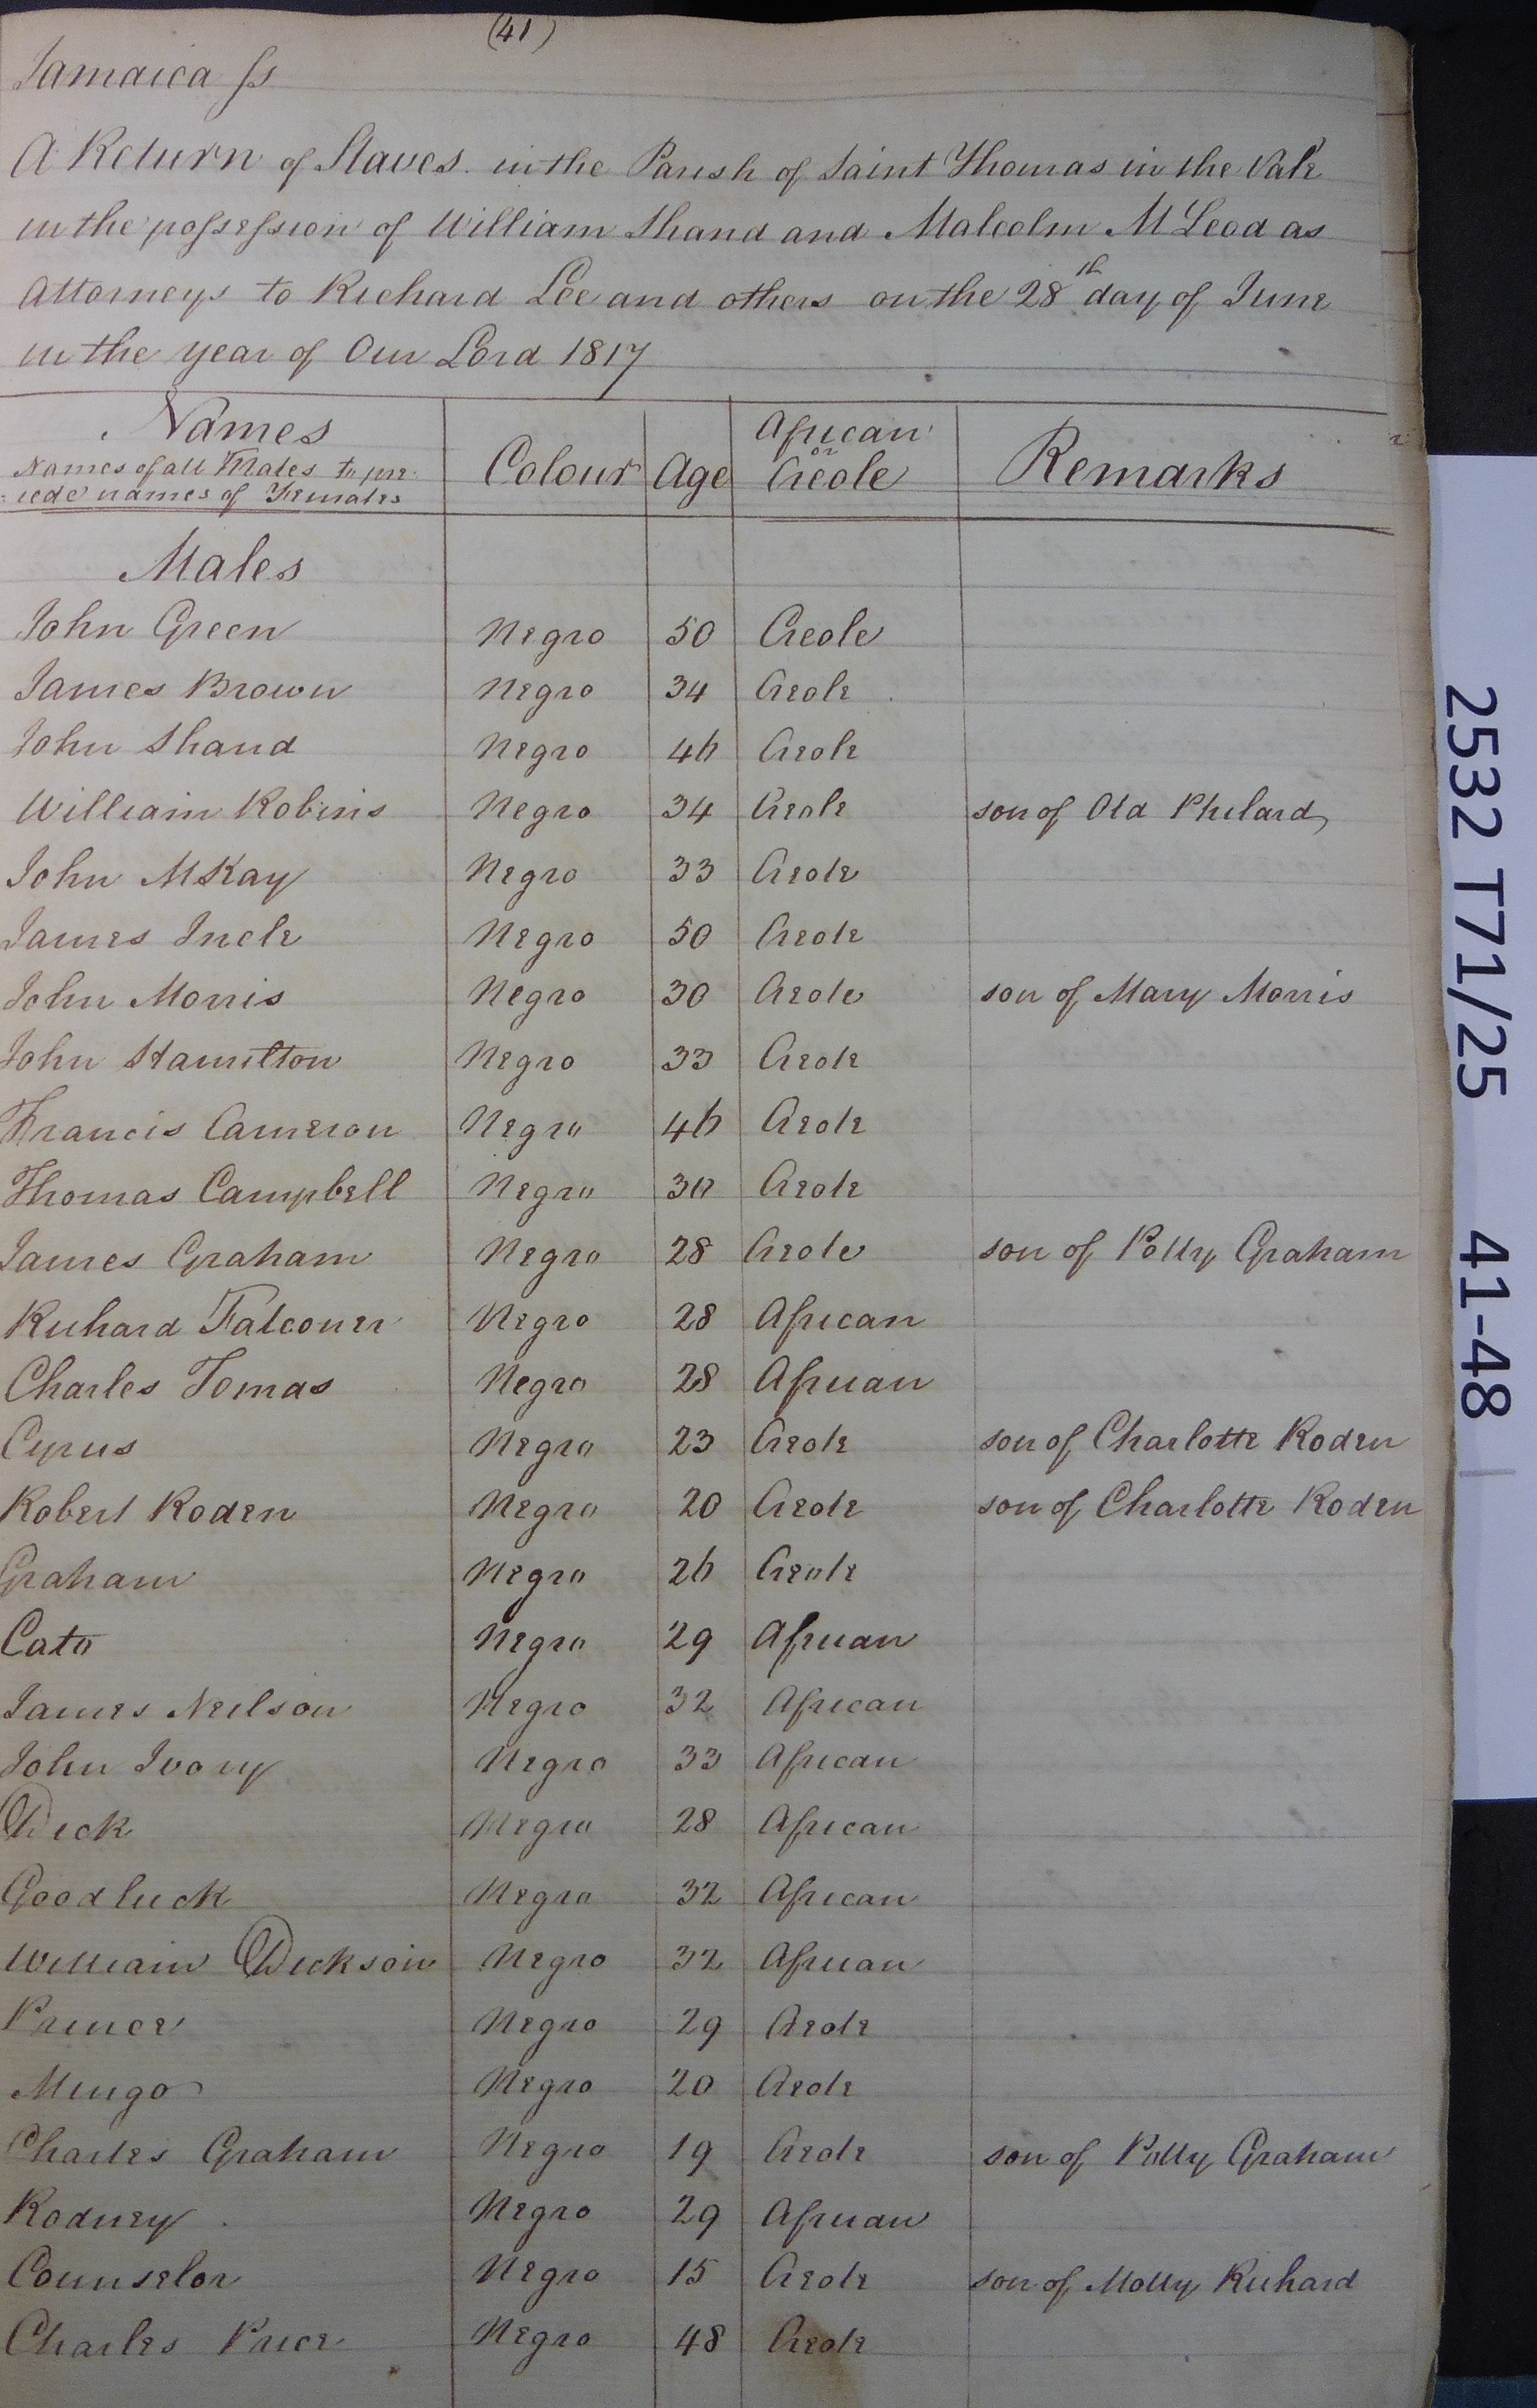 (41)
Jamaica ſs
A Return of Slaves in the Parish of Saint Thomas in the Vale
in the poſseſsion of William Shand and Malcolm McLeod as
Attorneys to Richard Lee and others on the 28th day of June
in the year of Our Lord 1817
Names
Names of all Males to pre
:cede names of Females
Colour Age African or Creole Remarks
Males
John Green Negro 50 Creole
James Brown Negro 34 Creole
John Shand Negro 46 Creole
William Robins Negro 34 Creole son of Old Philard
John McKay Negro 33 Creole
James Incle Negro 50 Creole
John Morris Negro 30 Creole son of Mary Morris
John Hamilton Negro 33 Creole
Francis Cameron Negro 46 Creole
Thomas Campbell Negro 30 Creole
James Graham Negro 28 Creole son of Polly Graham
Richard Falconer Negro 28 African
Charles Tomas Negro 28 African
Cyrus Negro 23 Creole son of Charlotte Roden
Robert Roden Negro 20 Creole son of Charlotte Roden
Graham Negro 26 Creole
Cato Negro 29 African
James Neilson Negro 32 African
John Ivory Negro 33 African
Dick Negro 28 African
Goodluck Negro 32 African
William Dickson Negro 32 African
Prince Negro 29 Creole
Mingo Negro 20 Creole
Charles Graham Negro 19 Creole son of Polly Graham
Rodney Negro 29 African
Counselor Negro 15 Creole son of Molly Richard
Charles Price Negro 48 Creole
2532 T71/25 41-48